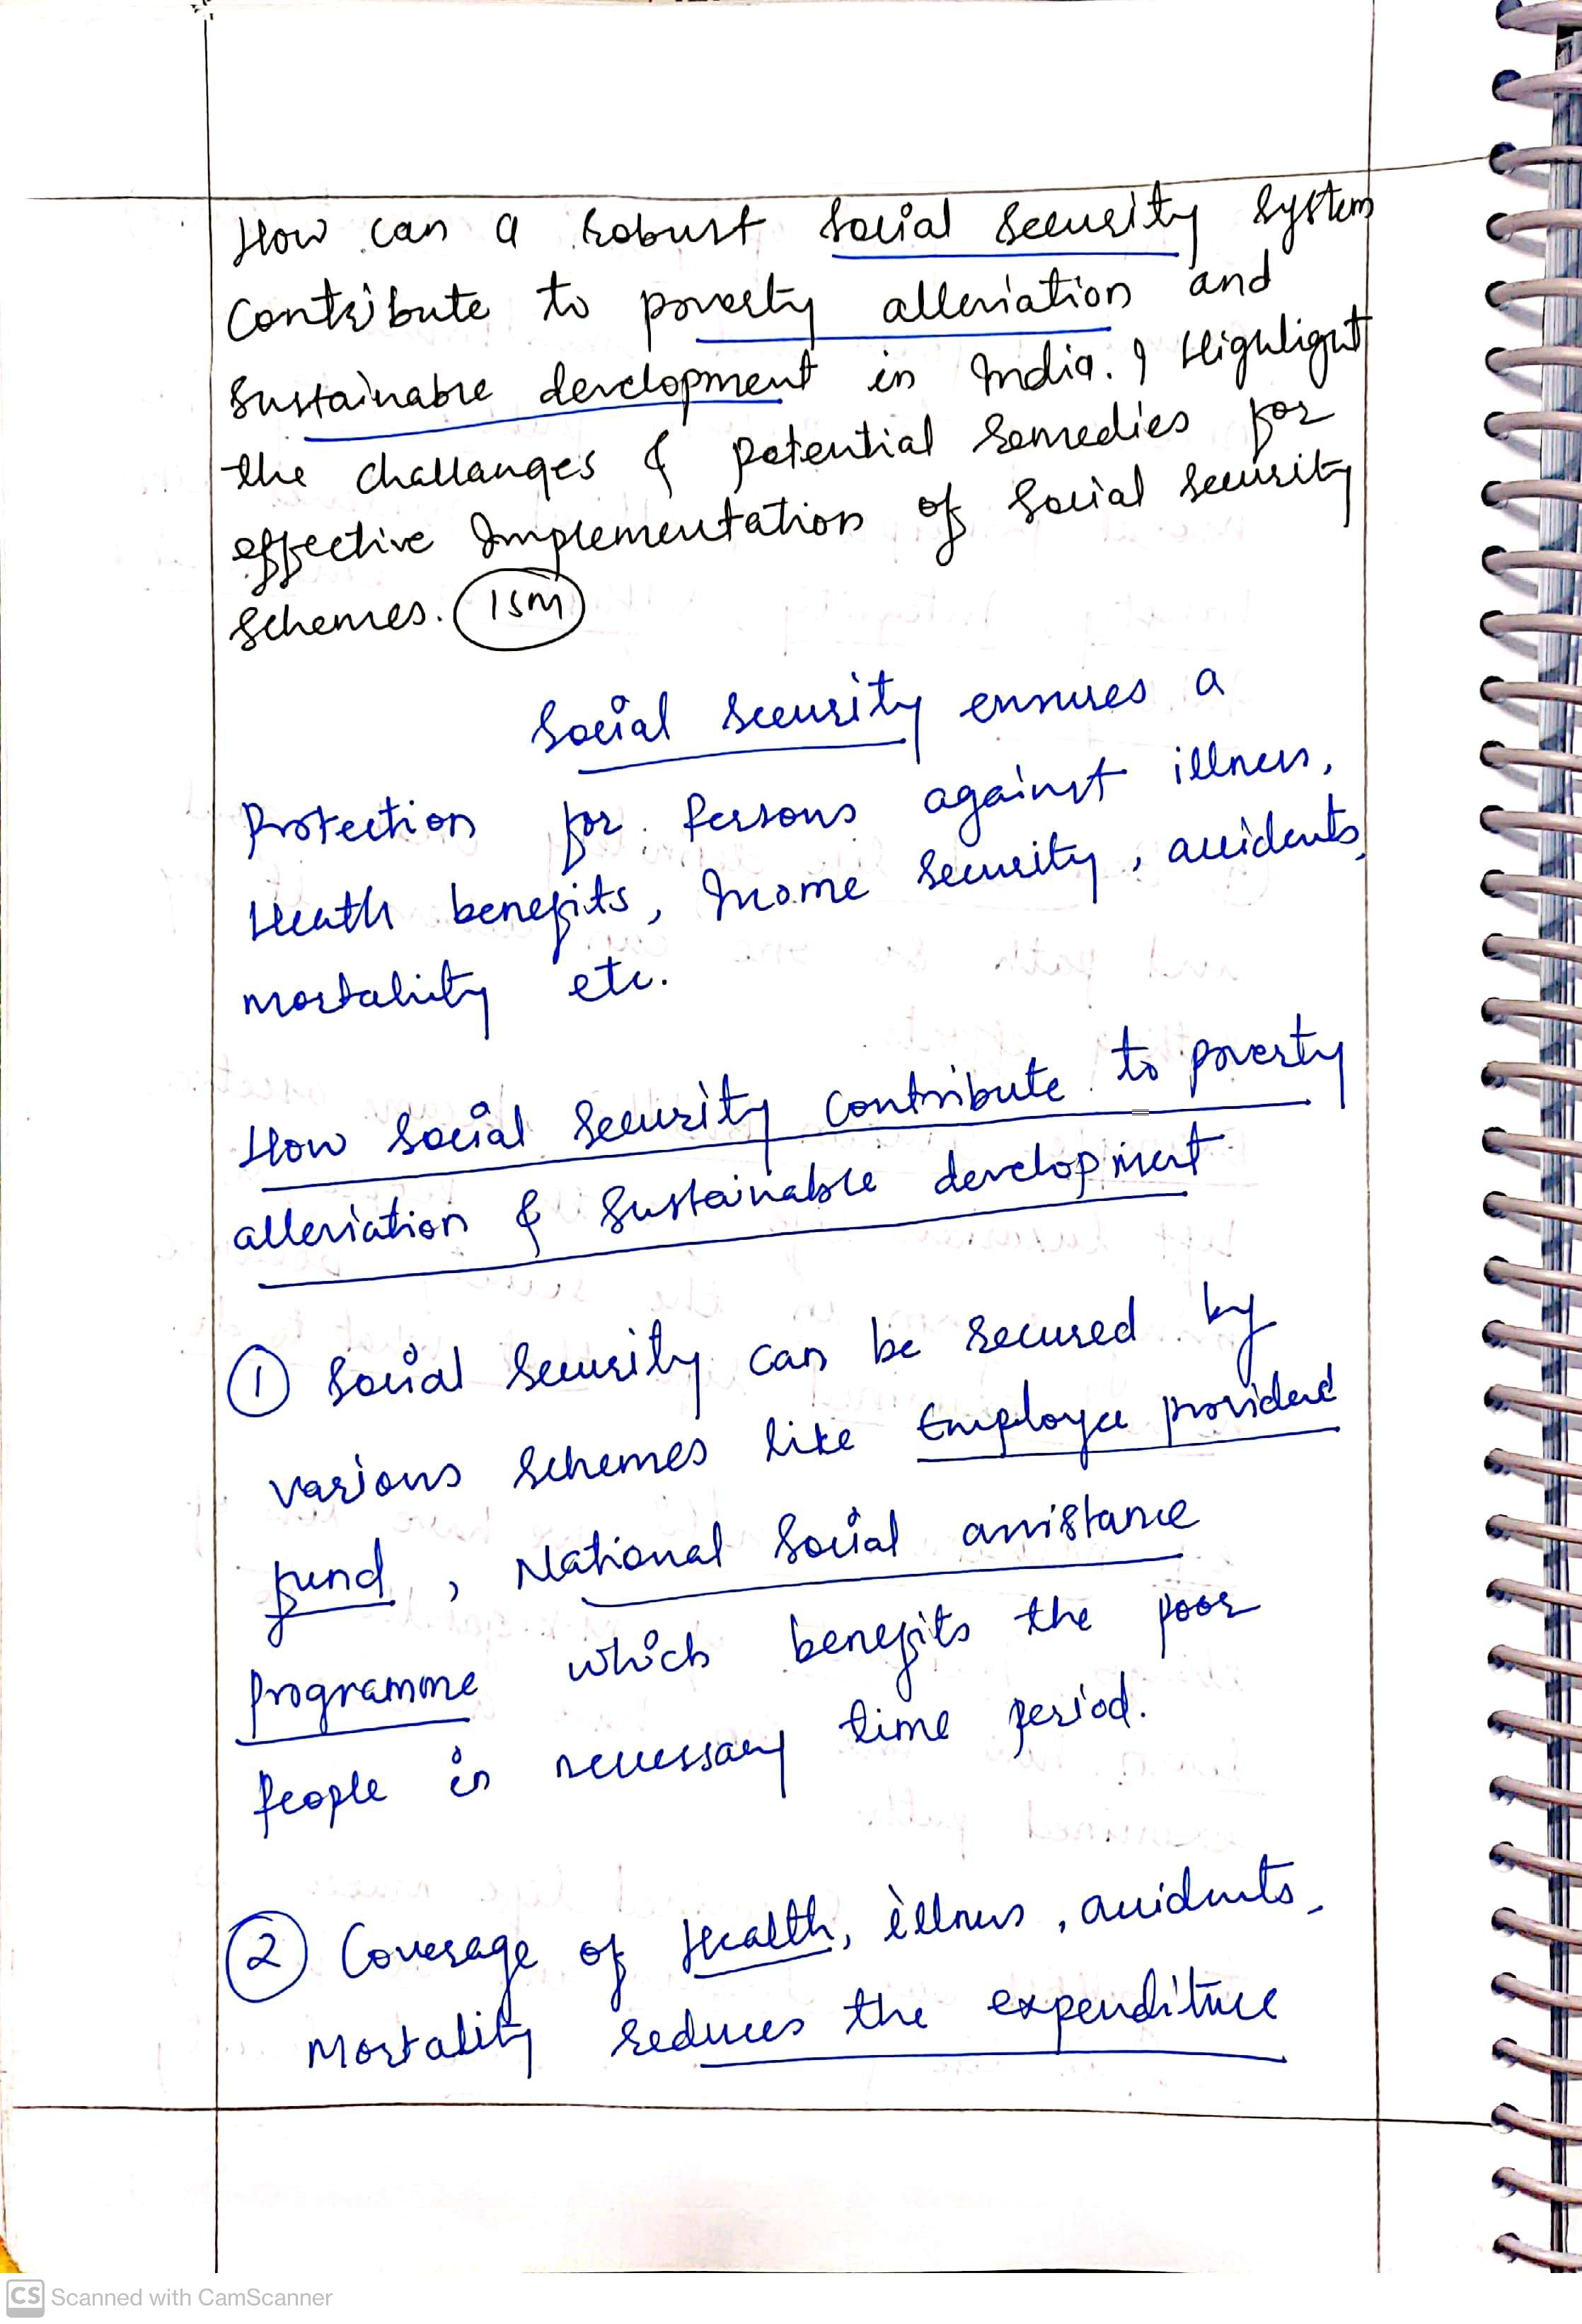 How can a robust Social Security System
Contribute to poverty alleviation and
Sustainable development in India. Highlight
the challanges & potential remedies for
effective Implementation of Social Security
Schemes. 15M
Social Security ensures a
Protection for Persons against illness,
Heath benefits, Income Security, accidents,
mortality etc.
How Social Security Contribute to poverty
alleviation & Sustainable development
① Social Security can be secured by
various Schemes like Employee provided
fund, National Social assistance
Programme which benefits the poor
People in necessary time period.
② Coverage of Health, illness, accidents,
Mortality reduces the expenditure
CS Scanned with CamScanner